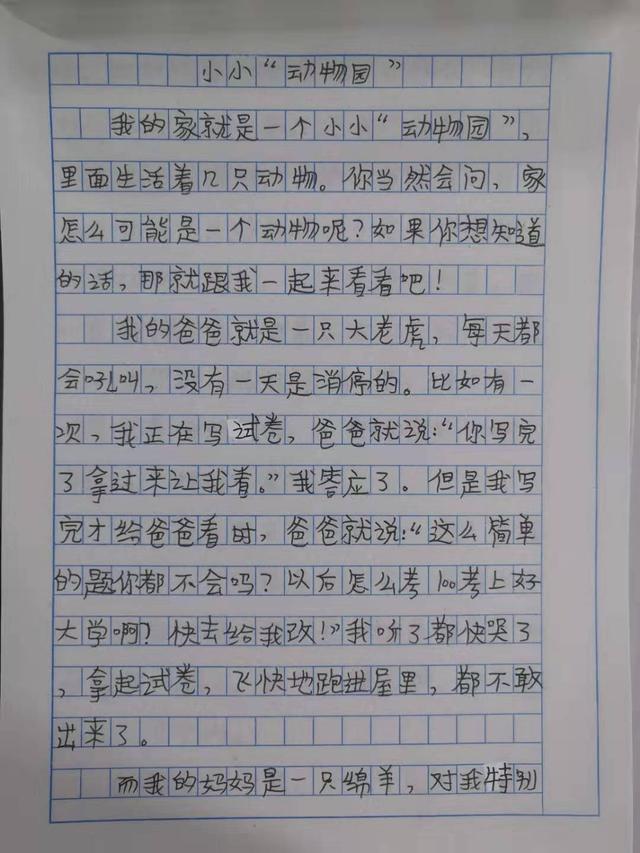 小小“动物园”
我的家就是一个小小“动物园”，
里面生活着几只动物。你当然会问，家
怎么可能是一个动物呢？如果你想知道
的话，那就跟我一起来看看吧！
我的爸爸就是一只大老虎，每天都
会吼叫，没有一天是消停的。比如有一
次，我正在写试卷，爸爸就说：“你写完
了拿过来让我看。”我答应了。但是我写
完才给爸爸看时，爸爸就说：“这么简单
的题你都不会吗？以后怎么考100考上好
大学啊？快去给我改！”我听了都快哭了
，拿起试卷，飞快地跑进屋里，都不敢
出来了。
而我的妈妈是一只绵羊，对我特别